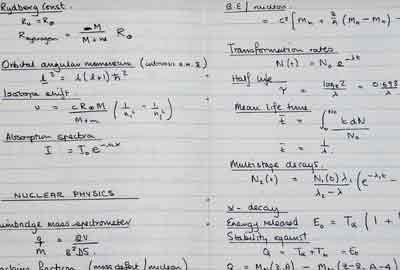 Rydberg Const.
R₀ = R∞
R hydrogen = M / M + m R∞
Orbital angular momentum
l² = l(l+1) ħ²
Isotope shift.
υ = c R∞ M / M + m ( 1/n₁² - 1/n₂² )
Absorption spectra
I = I₀ e^-nαx
NUCLEAR PHYSICS
Bainbridge mass spectrometer
q/m = 2V / B²DS.
fraction (mass defect / nucleon)
B.E / nucleon
= c² [ Mn + Z/A (MH - Mn) -
Transformation rates
N(t) = N₀ e^-λt
Half life
τ = loge 2 / λ = 0.693 / λ
Mean life time
t̄ = ∫₀^N₀ t dN / N₀
t̄ = 1/λ
Multistage decays.
N₂(t) = N₁(0) λ₁ / λ₂ - λ ( e^-λ₁t -
α - decay
Energy released E₀ = Tα ( 1 +
Stability against
Q = Tα + Tb = E₀
Q = Mn(Z, A) - Mn(Z-2, A-4)